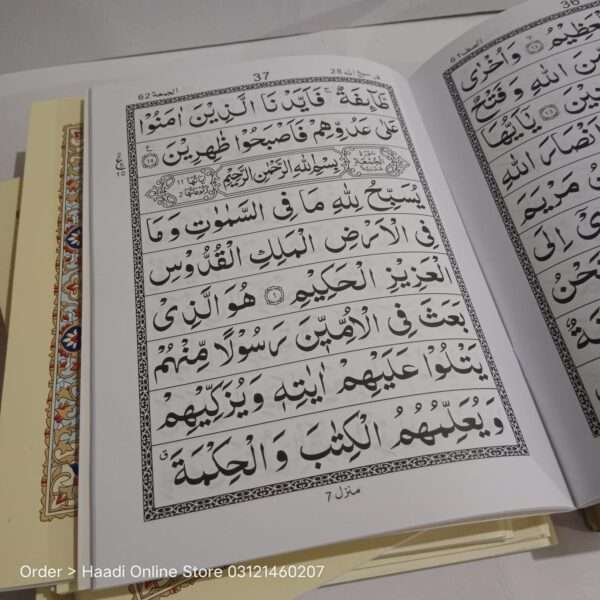 الجمعة ٦٢
37
قد سمع الله 28
طَآئِفَةٌ ۚ فَاَيَّدْنَا الَّذِيْنَ اٰمَنُوْا
عَلٰى عَدُوِّهِمْ فَاَصْبَحُوْا ظٰهِرِيْنَ ۝١٤
بِسْمِ اللهِ الرَّحْمٰنِ الرَّحِيْمِ
يُسَبِّحُ لِلّٰهِ مَا فِى السَّمٰوٰتِ وَمَا
فِى الْاَرْضِ الْمَلِكِ الْقُدُّوْسِ
الْعَزِيْزِ الْحَكِيْمِ ۝١ هُوَ الَّذِىْ
بَعَثَ فِى الْاُمِّيّٖنَ رَسُوْلًا مِّنْهُمْ
يَتْلُوْا عَلَيْهِمْ اٰيٰتِهٖ وَيُزَكِّيْهِمْ
وَيُعَلِّمُهُمُ الْكِتٰبَ وَالْحِكْمَةَ ۗ
منزل 7
36
الصف ٦١
وَاُخْرٰى
اللهِ وَفَتْحٌ
يٰٓاَيُّهَا
اَنْصَارَ اللهِ
مَرْيَمَ
اِلَى
نَحْنُ
Order > Haadi Online Store 03121460207